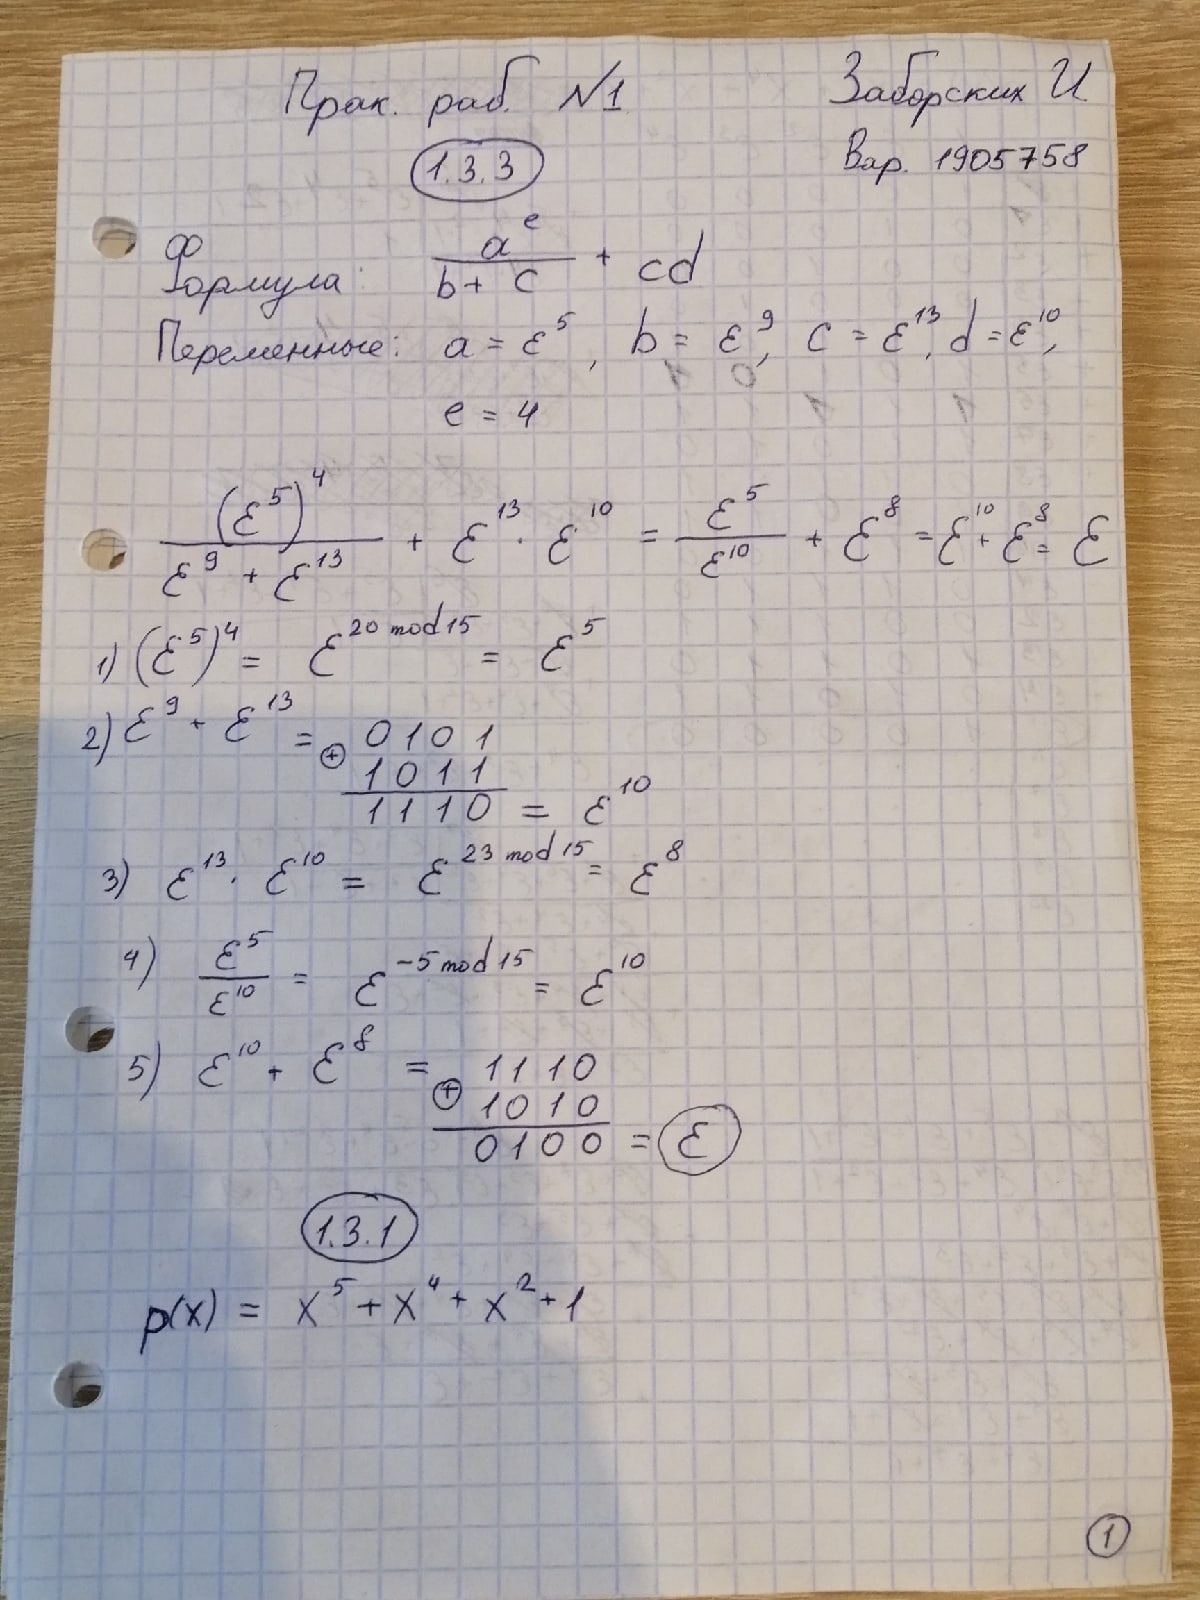 Прак. раб. №1 Заборских И
1.3.3 Вар. 1905758
Формула: a^e / (b + c) + cd
Переменные: a = ε^5, b = ε^9, c = ε^13, d = ε^10,
e = 4
(ε^5)^4 / (ε^9 + ε^13) + ε^13 · ε^10 = ε^5 / ε^10 + ε^8 = ε^10 + ε^8 = ε
1) (ε^5)^4 = ε^(20 mod 15) = ε^5
2) ε^9 + ε^13 = 0101
⊕ 1011
1110 = ε^10
3) ε^13 · ε^10 = ε^(23 mod 15) = ε^8
4) ε^5 / ε^10 = ε^(-5 mod 15) = ε^10
5) ε^10 + ε^8 = 1110
⊕ 1010
0100 = ε
1.3.1
p(x) = x^5 + x^4 + x^2 + 1
1